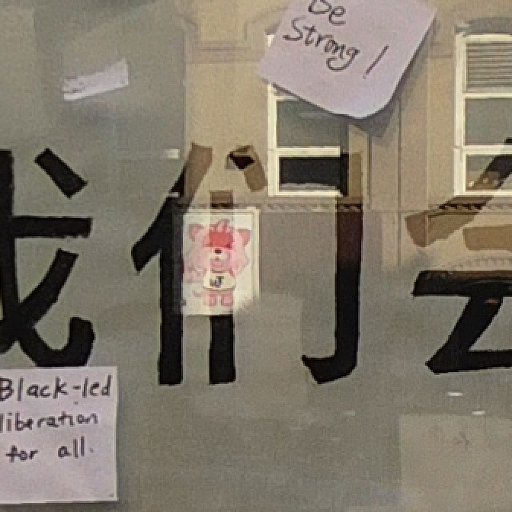 Be
Strong!
我们会
Black-led
liberation
for all.